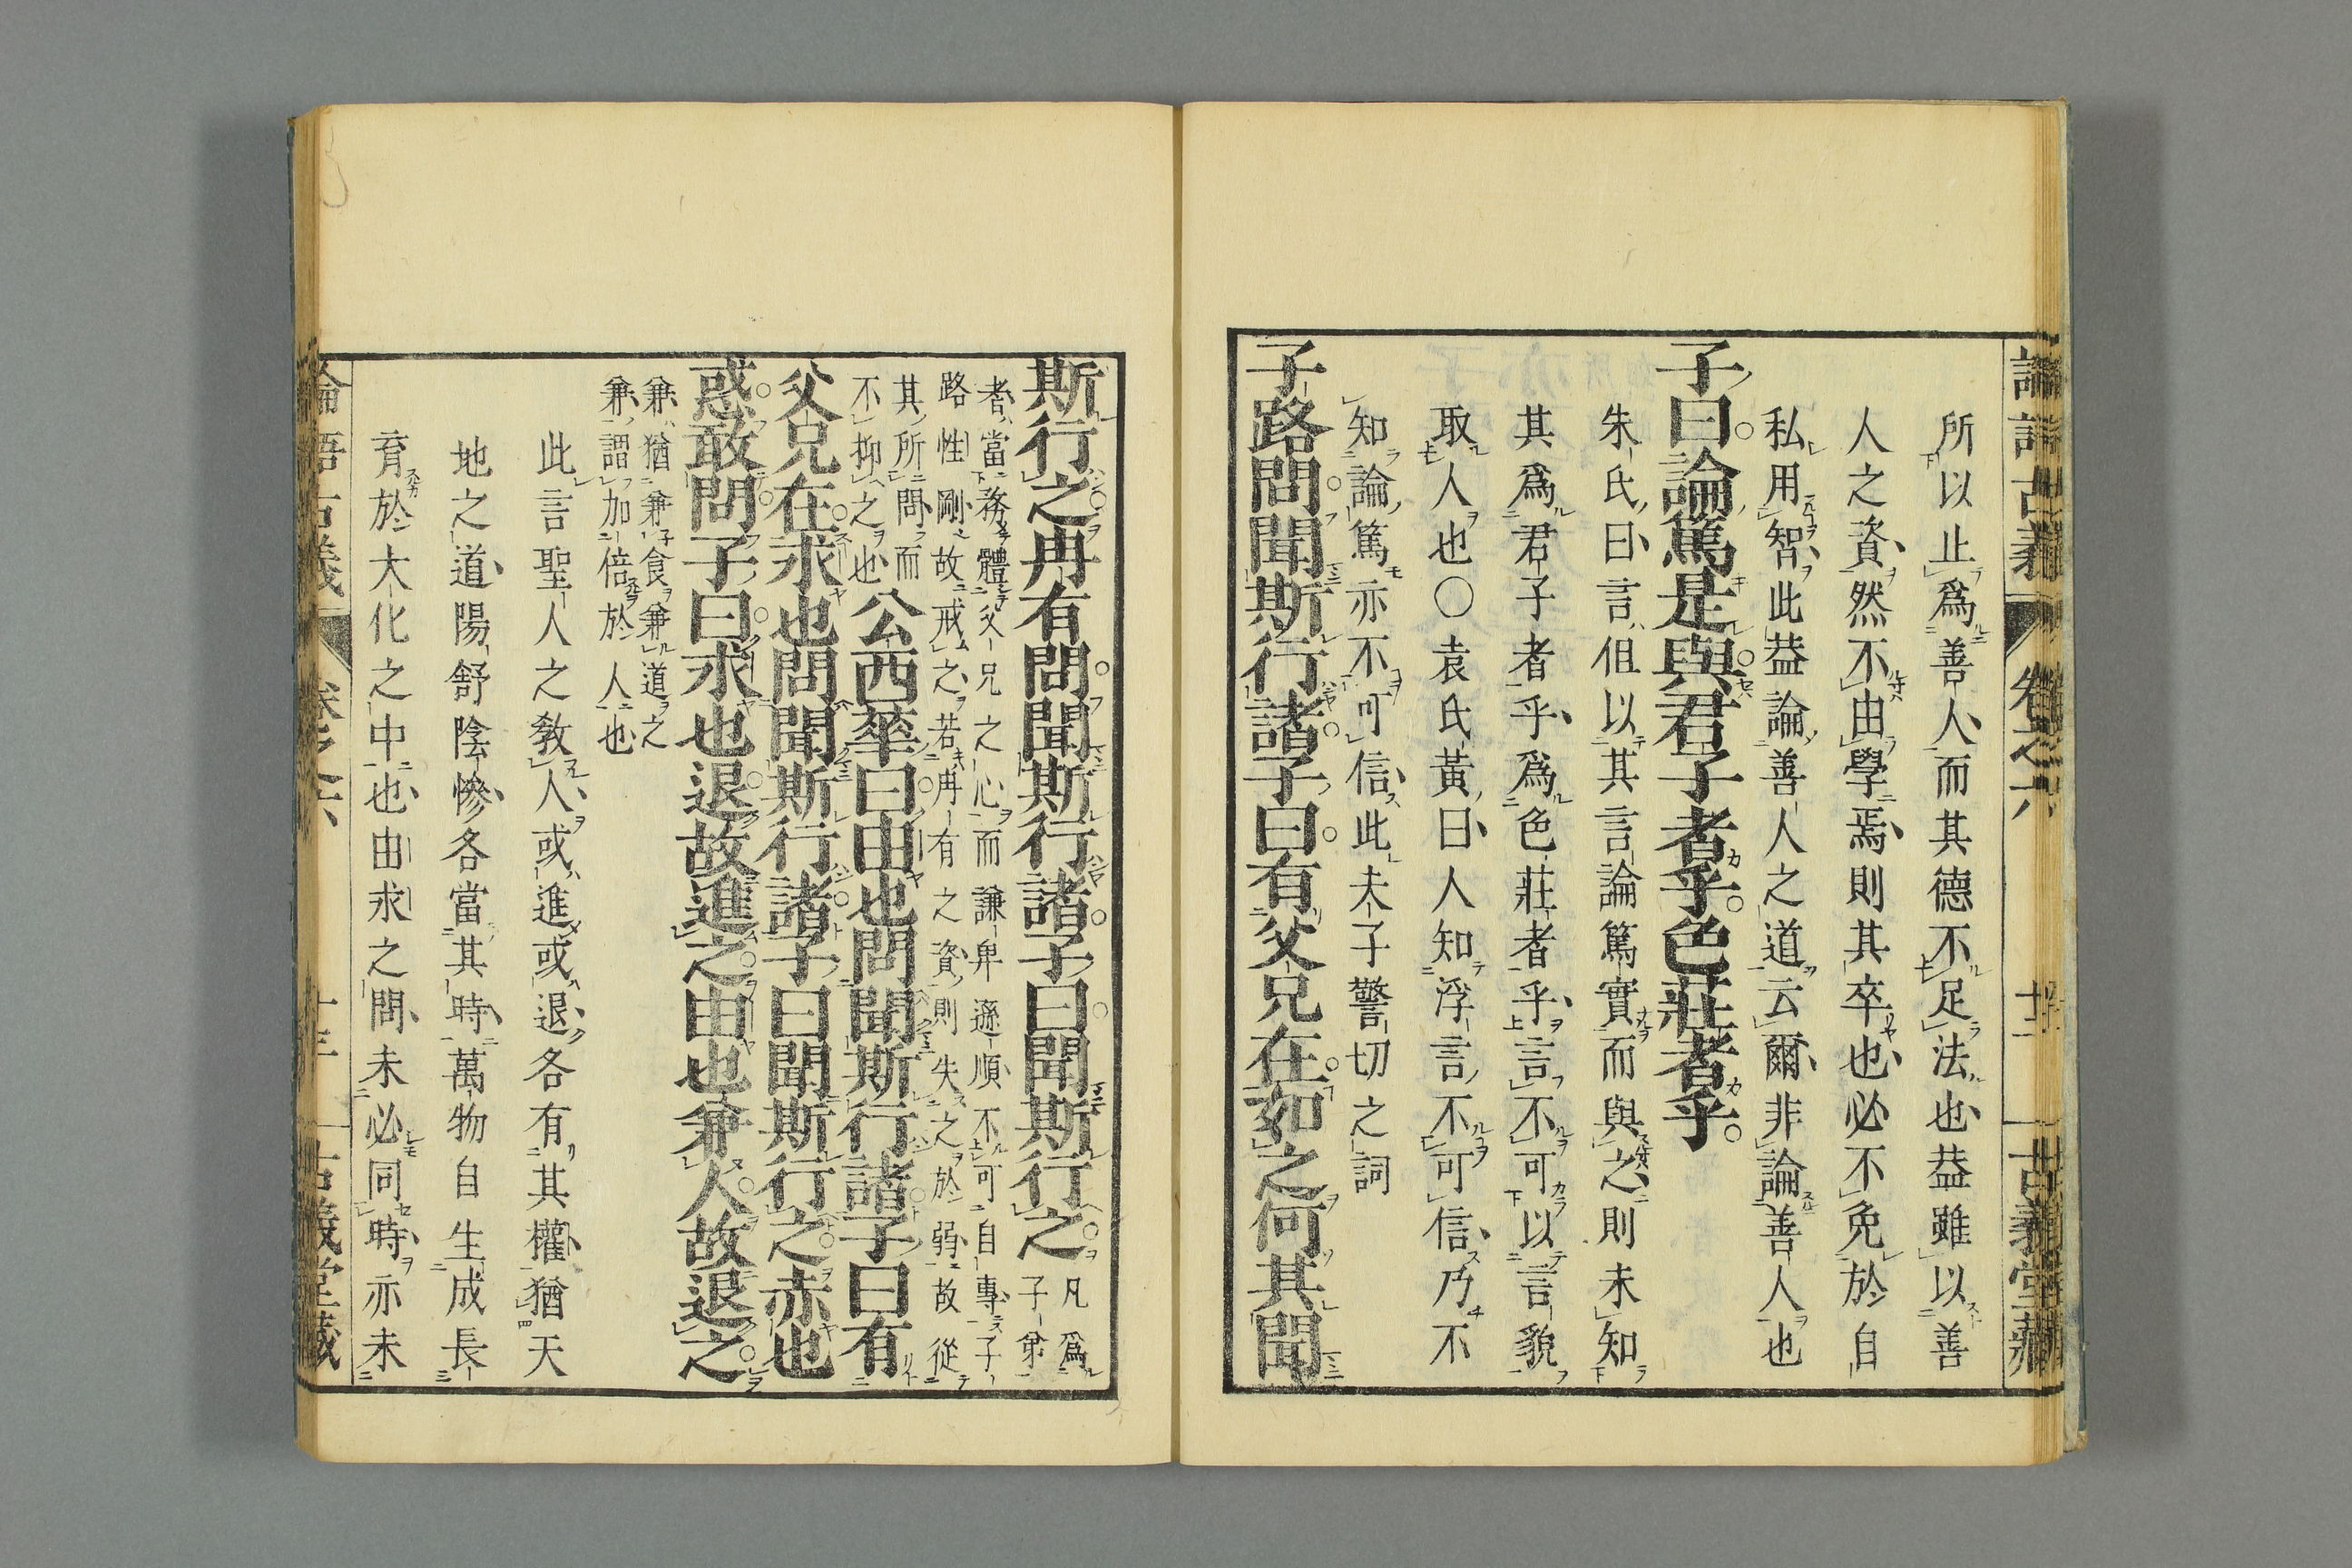 論語古義 卷之六 古義堂藏
所以止爲善人而其德不足法也益雖以善
人之資然不由學焉則其卒也必不免於自
私用智此益論善人之道云爾非論善人也
子曰論篤是與君子者乎色莊者乎
朱氏曰言但以其言論篤實而與之則未知
其爲君子者乎爲色莊者乎言不可以言貌
取人也○袁氏黃曰人知浮言不可信乃不
知論篤亦不可信此夫子警切之詞
子路問聞斯行諸子曰有父兄在如之何其聞
斯行之冉有問聞斯行諸子曰聞斯行之凡爲子弟
者當務體父兄之心而謙卑遜順不可自專子
路性剛故戒之若冉有之資則失之於弱故從
其所問而
不抑之也
公西華曰由也問聞斯行諸子曰有
父兄在求也問聞斯行諸子曰聞斯行之赤也
惑敢問子曰求也退故進之由也兼人故退之
兼猶兼食兼道之
兼謂加倍於人也
此言聖人之教人或進或退各有其權猶天
地之道陽舒陰慘各當其時萬物自生成長
育於大化之中也由求之問未必同時亦未
論語古義 卷之六 十三 古義堂藏